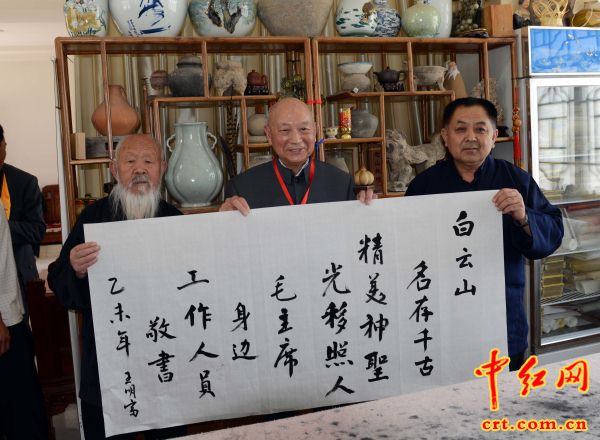 白云山
名存千古
精美神聖
光移照人
毛主席
身边
工作人員
敬書
乙未年 王明富
中红网
crt.com.cn